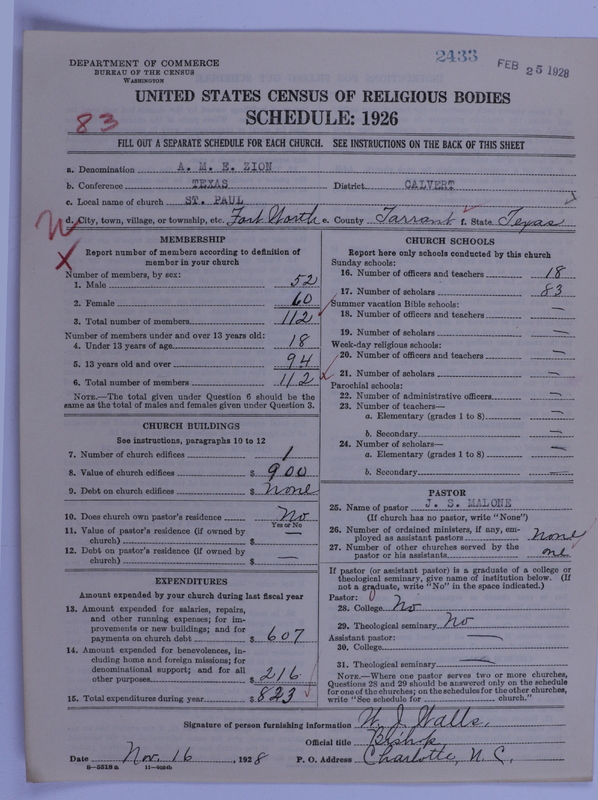 DEPARTMENT OF COMMERCE
BUREAU OF THE CENSUS
WASHINGTON
2433
FEB 25 1928
UNITED STATES CENSUS OF RELIGIOUS BODIES
SCHEDULE: 1926
83
FILL OUT A SEPARATE SCHEDULE FOR EACH CHURCH. SEE INSTRUCTIONS ON THE BACK OF THIS SHEET
a. Denomination A. M. E. ZION
b. Conference TEXAS District CALVERT
c. Local name of church ST. PAUL
d. City, town, village, or township, etc. Fort Worth e. County Tarrant f. State Texas
MEMBERSHIP
Report number of members according to definition of
member in your church
Number of members, by sex:
1. Male 52
2. Female 60
3. Total number of members 112
Number of members under and over 13 years old:
4. Under 13 years of age 18
5. 13 years old and over 94
6. Total number of members 112
NOTE.—The total given under Question 6 should be the
same as the total of males and females given under Question 3.
CHURCH BUILDINGS
See instructions, paragraphs 10 to 12
7. Number of church edifices 1
8. Value of church edifices $ 900
9. Debt on church edifices $ none
10. Does church own pastor's residence No
Yes or No
11. Value of pastor's residence (if owned by
church) $ —
12. Debt on pastor's residence (if owned by
church) $ —
EXPENDITURES
Amount expended by your church during last fiscal year
13. Amount expended for salaries, repairs,
and other running expenses; for im-
provements or new buildings; and for
payments on church debt $ 607
14. Amount expended for benevolences, in-
cluding home and foreign missions; for
denominational support; and for all
other purposes $ 216
15. Total expenditures during year $ 823
CHURCH SCHOOLS
Report here only schools conducted by this church
Sunday schools:
16. Number of officers and teachers 18
17. Number of scholars 83
Summer vacation Bible schools:
18. Number of officers and teachers —
19. Number of scholars —
Week-day religious schools:
20. Number of officers and teachers —
21. Number of scholars —
Parochial schools:
22. Number of administrative officers —
23. Number of teachers—
a. Elementary (grades 1 to 8) —
b. Secondary —
24. Number of scholars—
a. Elementary (grades 1 to 8) —
b. Secondary —
PASTOR
25. Name of pastor J. S. MALONE
(If church has no pastor, write "None")
26. Number of ordained ministers, if any, em-
ployed as assistant pastors none
27. Number of other churches served by the
pastor or his assistants one
If pastor (or assistant pastor) is a graduate of a college or
theological seminary, give name of institution below. (If
not a graduate, write "No" in the space indicated.)
Pastor:
28. College No
29. Theological seminary No
Assistant pastor:
30. College —
31. Theological seminary —
NOTE.—Where one pastor serves two or more churches,
Questions 28 and 29 should be answered only on the schedule
for one of the churches; on the schedules for the other churches,
write "See schedule for church."
Signature of person furnishing information W. J. Walls,
Official title Bishop
Date Nov. 16, 1928 P. O. Address Charlotte, N. C.